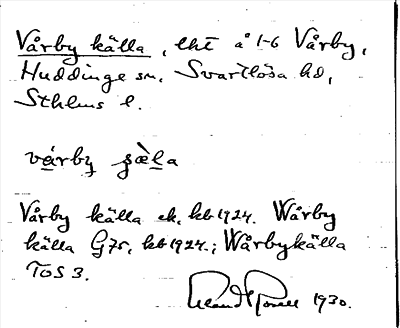 Vårby källa, lht å 1-6 Vårby,
Huddinge sn, Svartlösa hd,
Sthlms l.
vårby ɟæ̀la
Vårby källa ek. kb 1924. Wårby
källa G75, kb 1924.; Wårbykälla
TOS 3.
1930.